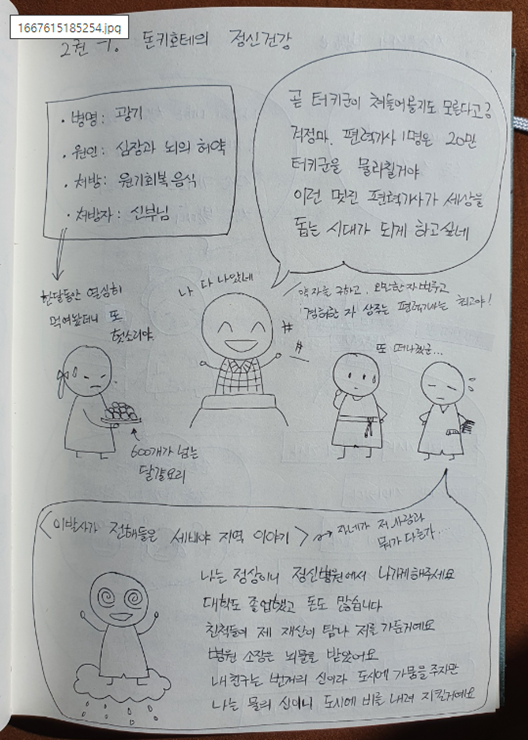 1667615185254.jpg
2권 1. 돈키호테의 정신건강
· 병명: 광기
· 원인: 심장과 뇌의 허약
· 처방: 원기회복 음식
· 처방자: 신부님
곧 터키군이 쳐들어올지도 모른다고?
걱정마. 편력기사 1명은 20만
터키군을 물리칠거야
이런 멋진 편력기사가 세상을
돕는 시대가 되게 하고싶네
한달동안 열심히
먹여놨더니 또
헛소리야
나 다 나았네
약자를 구하고, 오만한자 벌주고
겸허한 자 상주는 편력기사는 최고야!
또 떠나겠군...
600개가 넘는
달걀요리
<이발사가 전해들은 세비야 지역 이야기>
자네가 저 사람과
뭐가 다른가...
나는 정상이니 정신병원에서 나가게해주세요
대학도 졸업했고 돈도 많습니다
친척들이 제 재산이 탐나 저를 가둔거예요
병원 소장은 뇌물을 받았어요
내친구는 번개의 신이라 도시에 가뭄을 주지만
나는 물의 신이니 도시에 비를 내려 지킬거예요